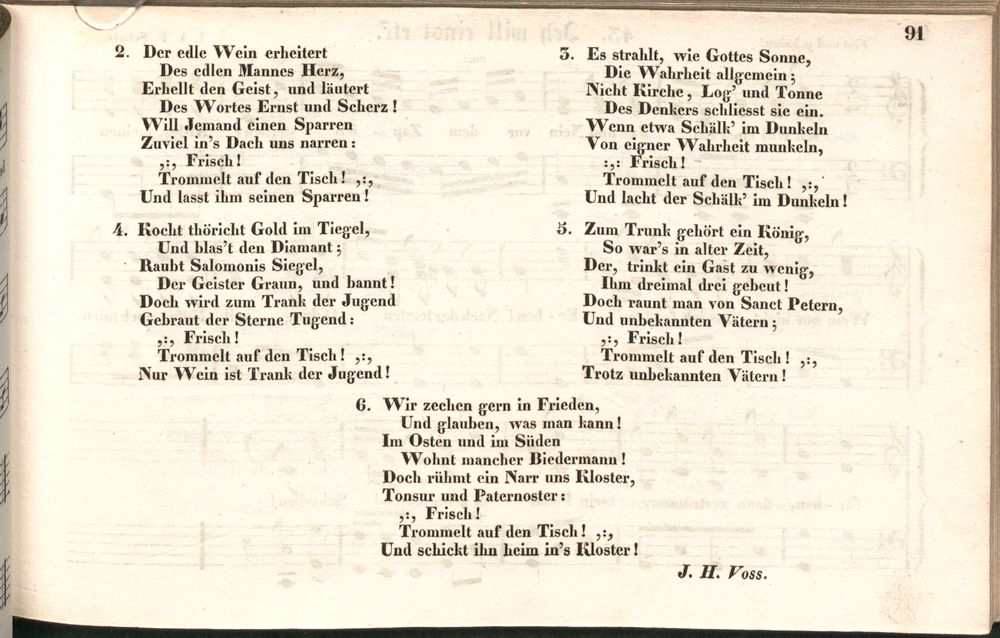 91
2. Der edle Wein erheitert
Des edlen Mannes Herz,
Erhellt den Geist, und läutert
Des Wortes Ernst und Scherz!
Will Jemand einen Sparren
Zuviel in's Dach uns narren:
,:, Frisch!
Trommelt auf den Tisch! ,:,
Und lasst ihm seinen Sparren!
3. Es strahlt, wie Gottes Sonne,
Die Wahrheit allgemein;
Nicht Kirche, Log' und Tonne
Des Denkers schliesst sie ein.
Wenn etwa Schälk' im Dunkeln
Von eigner Wahrheit munkeln,
:,: Frisch!
Trommelt auf den Tisch! ,:,
Und lacht der Schälk' im Dunkeln!
4. Kocht thöricht Gold im Tiegel,
Und blas't den Diamant;
Raubt Salomonis Siegel,
Der Geister Graun, und bannt!
Doch wird zum Trank der Jugend
Gebraut der Sterne Tugend:
,:, Frisch!
Trommelt auf den Tisch! ,:,
Nur Wein ist Trank der Jugend!
5. Zum Trunk gehört ein König,
So war's in alter Zeit,
Der, trinkt ein Gast zu wenig,
Ihm dreimal drei gebeut!
Doch raunt man von Sanct Petern,
Und unbekannten Vätern;
,:, Frisch!
Trommelt auf den Tisch! ,:,
Trotz unbekannten Vätern!
6. Wir zechen gern in Frieden,
Und glauben, was man kann!
Im Osten und im Süden
Wohnt mancher Biedermann!
Doch rühmt ein Narr uns Kloster,
Tonsur und Paternoster:
,:, Frisch!
Trommelt auf den Tisch! ,:,
Und schickt ihn heim in's Kloster!
J. H. Voss.